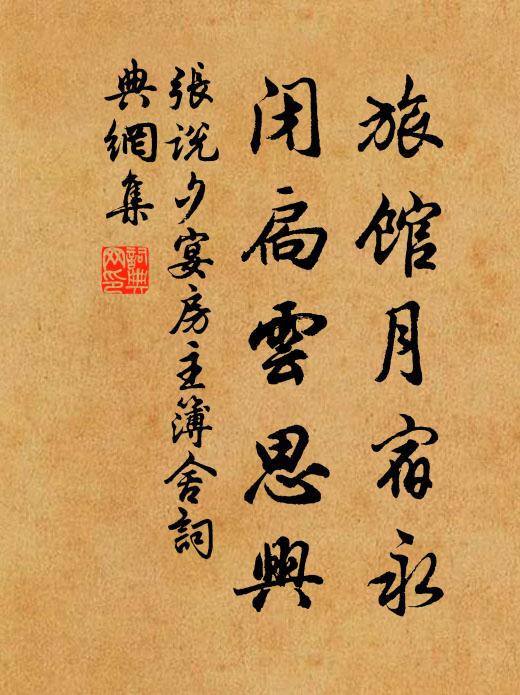 旅館月宿永
閉扃雲思興
張說夕宴房主簿舍詞
典網集
詞典網印